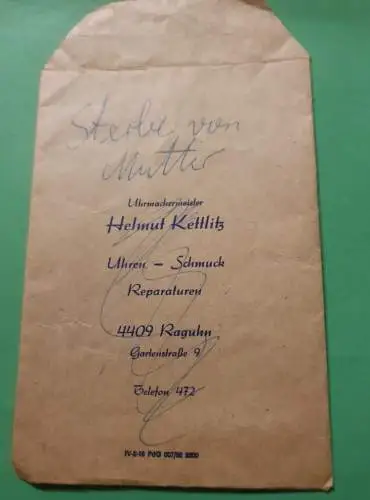 Sterbe von
Mutter
Uhrmachermeister
Helmut Kettlitz
Uhren – Schmuck
Reparaturen
4409 Raguhn
Gartenstraße 9
Telefon 472